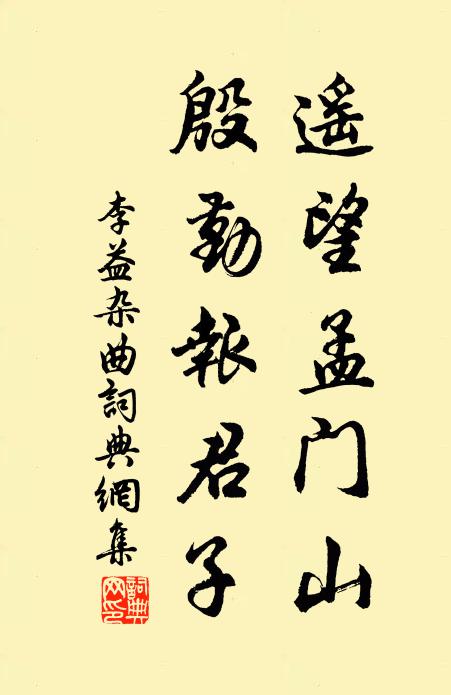 遥望孟门山
殷勤報君子
李益杂曲詞典網集
詞典网印